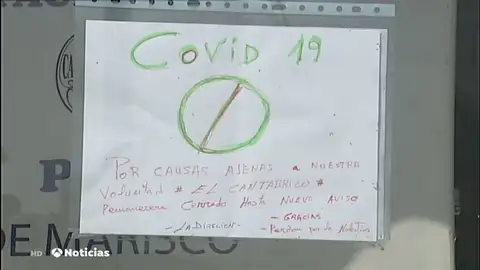 Covid 19
POR CAUSAS AJENAS a NUESTRA
Voluntad * EL CANTABRICO *
Permanecera CERRADO HASTA NUEVO AVISO
- GRACIAS
- LA DIRECION -
- Perdon por la Molestias
P
DE MARISCO
HD Noticias